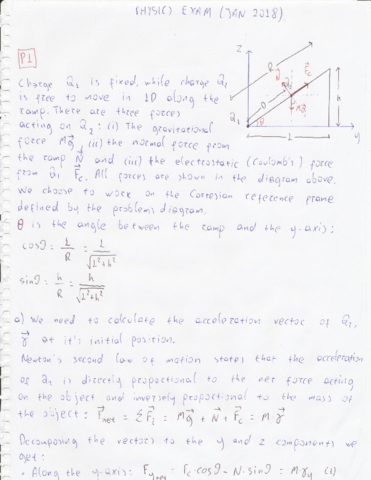 PHYSICS EXAM (JAN 2018)
P1
z
R
D
Q₁
θ
L
h
y
Charge Q₁ is fixed, while charge Q₂
is free to move in 1D along the
ramp. There are three forces
acting on Q₂: (i) The gravitational
force Mg⃗, (ii) the normal force from
the ramp N⃗ and (iii) the electrostatic (Coulomb's) force
from Q₁ F⃗c. All forces are shown in the diagram above.
We choose to work on the Cartesian reference frame
defined by the problem's diagram.
θ is the angle between the ramp and the y-axis:
cosθ = L/R = L/√(L²+h²)
sinθ = h/R = h/√(L²+h²)
a) We need to calculate the acceleration vector of Q₂,
γ⃗ at it's initial position.
Newton's second law of motion states that the acceleration
of Q₂ is directly proportional to the net force acting
on the object and inversely proportional to the mass of
the object: F⃗net = ΣF⃗i = Mg⃗ + N⃗ + F⃗c = M·γ⃗
Decomposing the vectors to the y and z components we
get:
• Along the y-axis: Fy,net = Fc·cosθ - N·sinθ = M·γy (1)